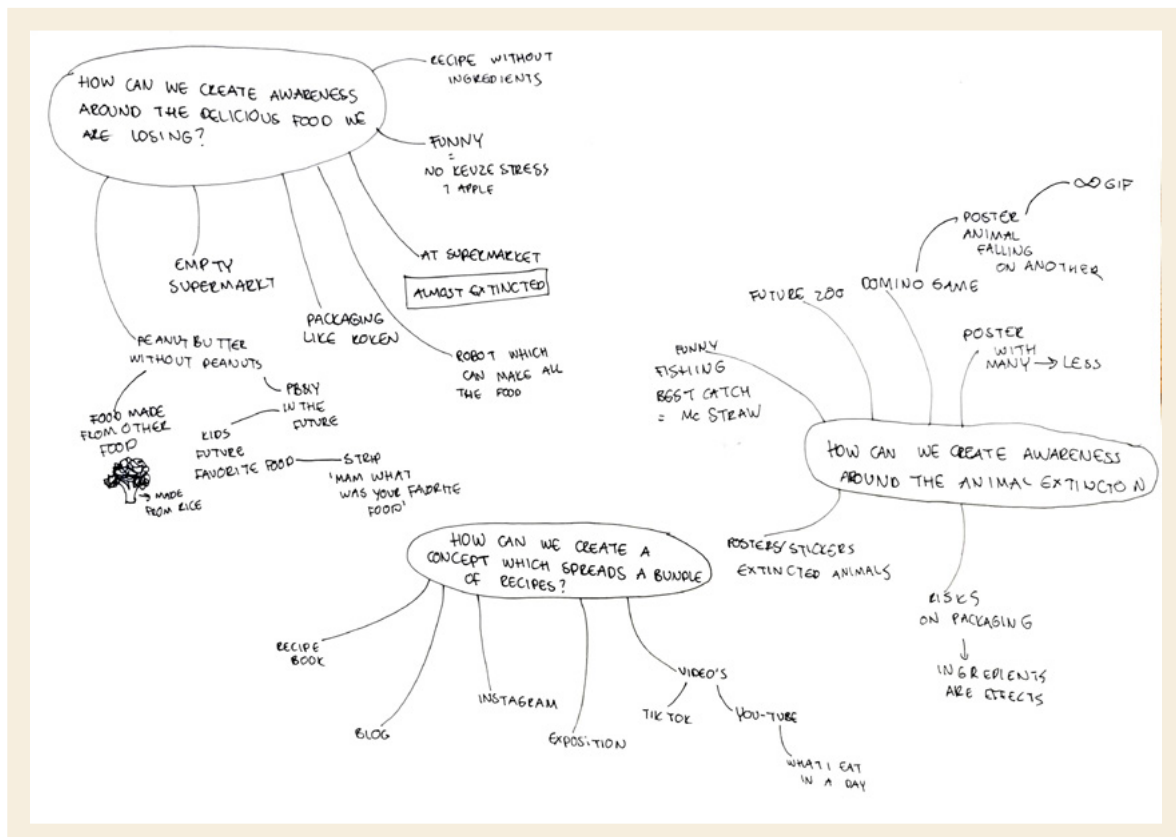 HOW CAN WE CREATE AWARENESS
AROUND THE DELICIOUS FOOD WE
ARE LOSING?
RECIPE WITHOUT
INGREDIENTS
FUNNY
=
NO KEUZE STRESS
1 APPLE
AT SUPERMARKET
ALMOST EXTINCTED
ROBOT WHICH
CAN MAKE ALL
THE FOOD
PACKAGING
LIKE ROKEN
EMPTY
SUPERMARKT
PEANUT BUTTER
WITHOUT PEANUTS
FOOD MADE
FROM OTHER
FOOD
→ MADE
FROM RICE
PB&Y
IN THE
FUTURE
KIDS
FUTURE
FAVORITE FOOD
STRIP
'MAM WHAT
WAS YOUR FAVORITE
FOOD'
HOW CAN WE CREATE A
CONCEPT WHICH SPREADS A BUNDLE
OF RECIPES?
RECIPE
BOOK
BLOG
INSTAGRAM
EXPOSITION
VIDEO'S
TIKTOK
YOU-TUBE
WHAT I EAT
IN A DAY
HOW CAN WE CREATE AWARENESS
AROUND THE ANIMAL EXTINCTON
FUNNY
FISHING
BEST CATCH
= MC STRAW
FUTURE ZOO
DOMINO GAME
POSTER
ANIMAL
FALLING
ON ANOTHER
∞ GIF
POSTER
WITH
MANY → LESS
POSTERS/STICKERS
EXTINCTED ANIMALS
RISKS
ON PACKAGING
↓
INGREDIENTS
ARE EFFECTS